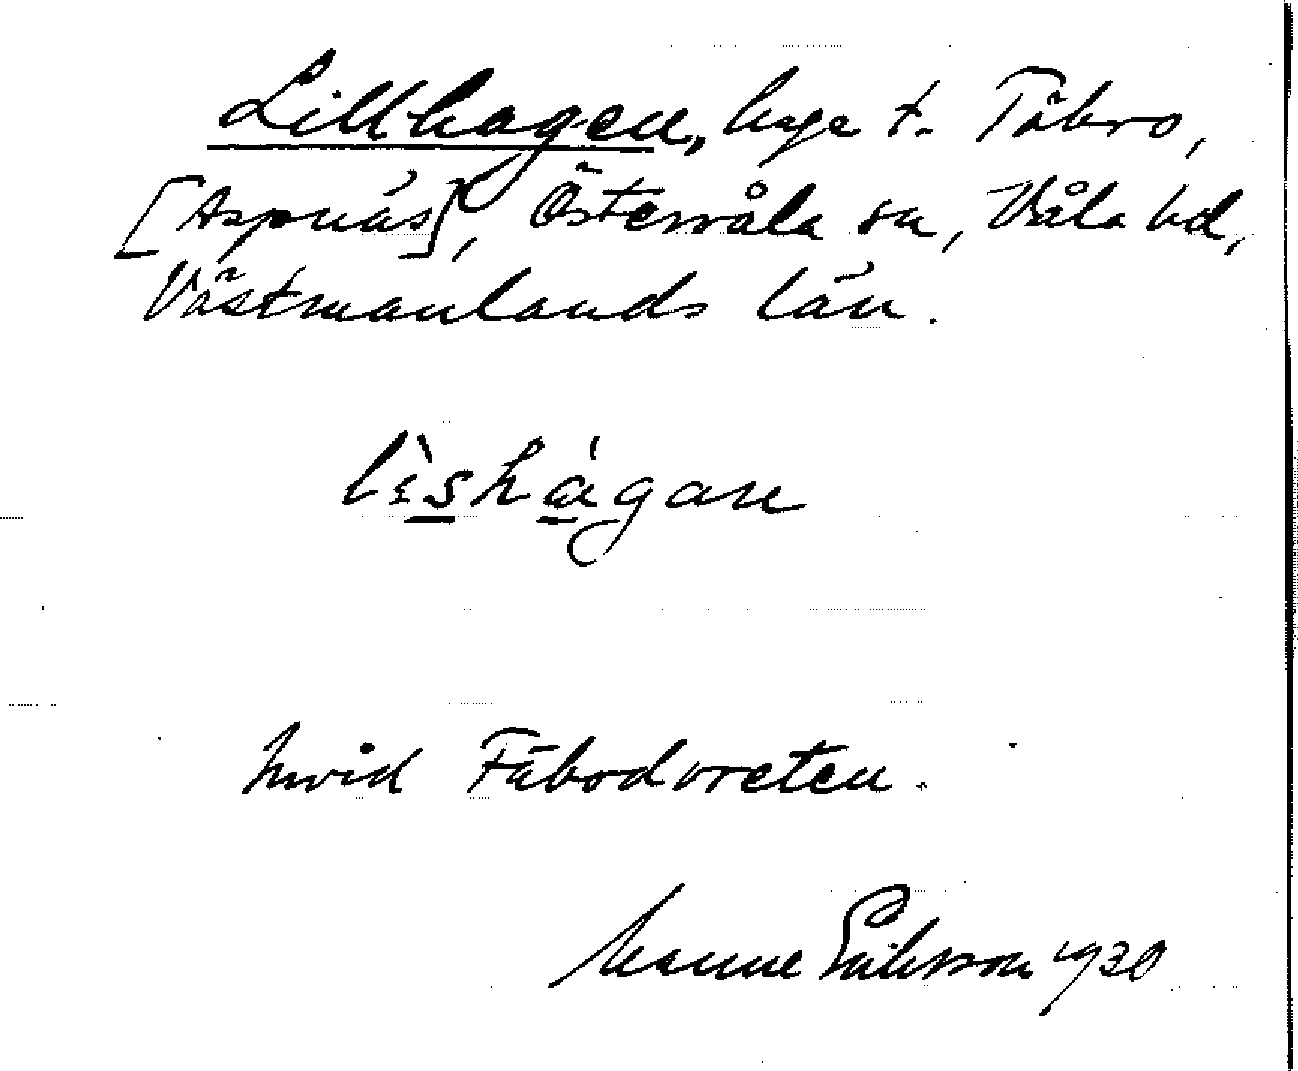 Lillhagen, hage t. Tåbro,
[Aspnäs], Östervåla sn, Våla hd,
Västmanlands län.
lìshágan
Invid Fäbodvreten.
Manne Eriksson 1930